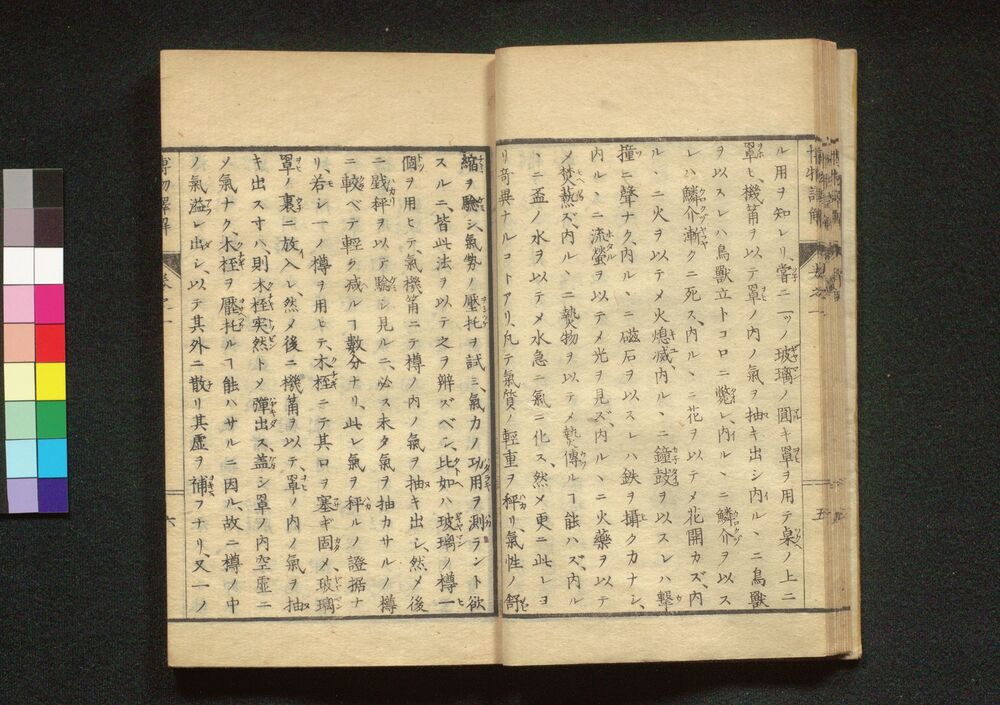 ル用ヲ知レリ、嘗ニ一ツノ玻璃ノ圓キ罩ヲ用テ梟ノ上ニ
罩ヒ、機筩ヲ以テ罩ノ内ノ氣ヲ抽キ出シ内ル、ニ鳥獸
ヲ以スレハ鳥獸立トコロニ斃レ、内ル、ニ鱗介ヲ以ス
レハ鱗介漸クニ死ス、内ル、ニ花ヲ以テメ花開カズ、内
ル、ニ火ヲ以テメ火熄滅、内ル、ニ鐘鼓ヲ以スレハ擊
撞ニ聲ナク、内ル、ニ磁石ヲ以スレハ鉄ヲ攝クカナシ、
内ル、ニ流螢ヲ以テメ光ヲ見ズ、内ル、ニ火藥ヲ以テ
メ焚爇ズ、内ル、ニ爇物ヲ以テメ爇傳ルヿ能ハズ、内ル
、ニ盃ノ水ヲ以テメ水急ニ氣ニ化ス、然メ更ニ此レヨ
リ奇異ナルコトアリ、凡テ氣質ノ輕重ヲ秤リ、氣性ノ舒
縮ヲ驗シ、氣勢ノ壓托ヲ試ミ、氣力ノ功用ヲ測ラント欲
スルニ、皆此法ヲ以テ之ヲ辨ズベシ、比如ハ玻璃ノ樽一
個ヲ用ヒテ、氣機筩ニテ樽ノ内ノ氣ヲ抽キ出シ、然メ後
ニ戥秤ヲ以テ驗シ見ルニ、必ス未タ氣ヲ抽カサルノ樽
ニ較ベテ輕ク減ルヿ數分ナリ、此レ氣ヲ秤ルノ證据ナ
リ、若シ一ノ樽ヲ用ヒテ、木桎ニテ其口ヲ塞ギ固メ、玻璃
罩ノ裏ニ放入レ然メ後ニ機筩ヲ以テ、罩ノ内ノ氣ヲ抽
キ出ス寸ハ、則木桎実然トメ彈出ス、盖シ罩ノ内空虚ニ
メ氣ナク、木桎ヲ壓托ルヿ能ハサルニ因ル、故ニ樽ノ中
ノ氣溢レ出シ、以テ其外ニ散リ其虚ヲ補フナリ、又一ノ
五
六